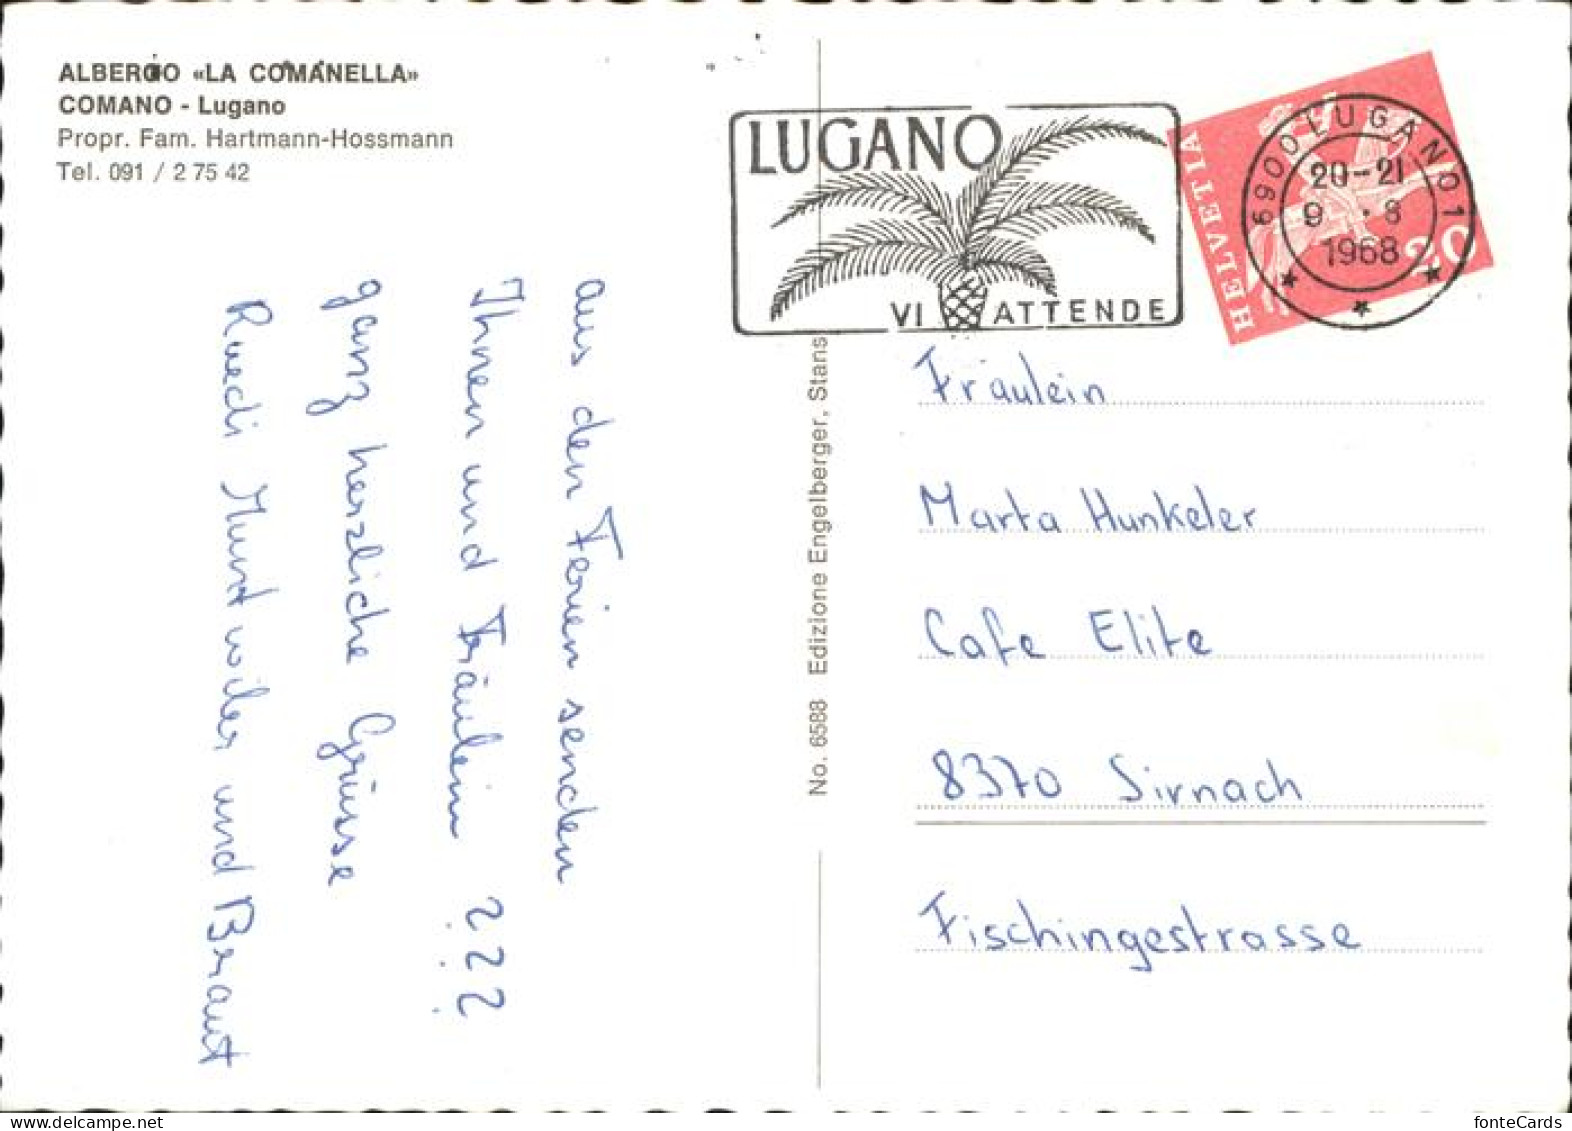 ALBERGO «LA COMANELLA»
COMANO - Lugano
Propr. Fam. Hartmann-Hossmann
Tel. 091 / 2 75 42
aus den Ferien senden
Ihnen und Fräulein ? ? ?
ganz herzliche Grüsse
Ruedi Muntwiler und Braut
No. 6588 Edizione Engelberger, Stans
LUGANO
VI ATTENDE
HELVETIA
20
6900 LUGANO 1
20-21
9.8
1968
Fräulein
Marta Hunkeler
Cafe Elite
8370 Sirnach
Fischingestrasse
fonteCards